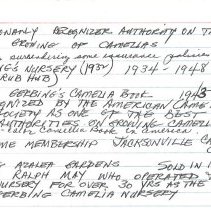 RECOGNIZER AUTHORITY ON TH
GROWING OF CAMELLIAS
surrendering some insurance policies
NG'S NURSERY (1930) 1934 - 1948
RUB HUB)
GERBING'S CAMELLIA BOOK 1943
GNIZED BY THE AMERICAN CAME
SOCIETY AS ONE OF THE BEST
AUTHORITIES ON GROWING CAMELL
Color Camellia Book in America.
ME MEMBERSHIP JACKSONVILLE CA
AZALEA GARDENS SOLD IN 1
RALPH MAY WHO OPERATED
NURSERY FOR OVER 30 YRS AS THE
GERBING CAMELLIA NURSERY